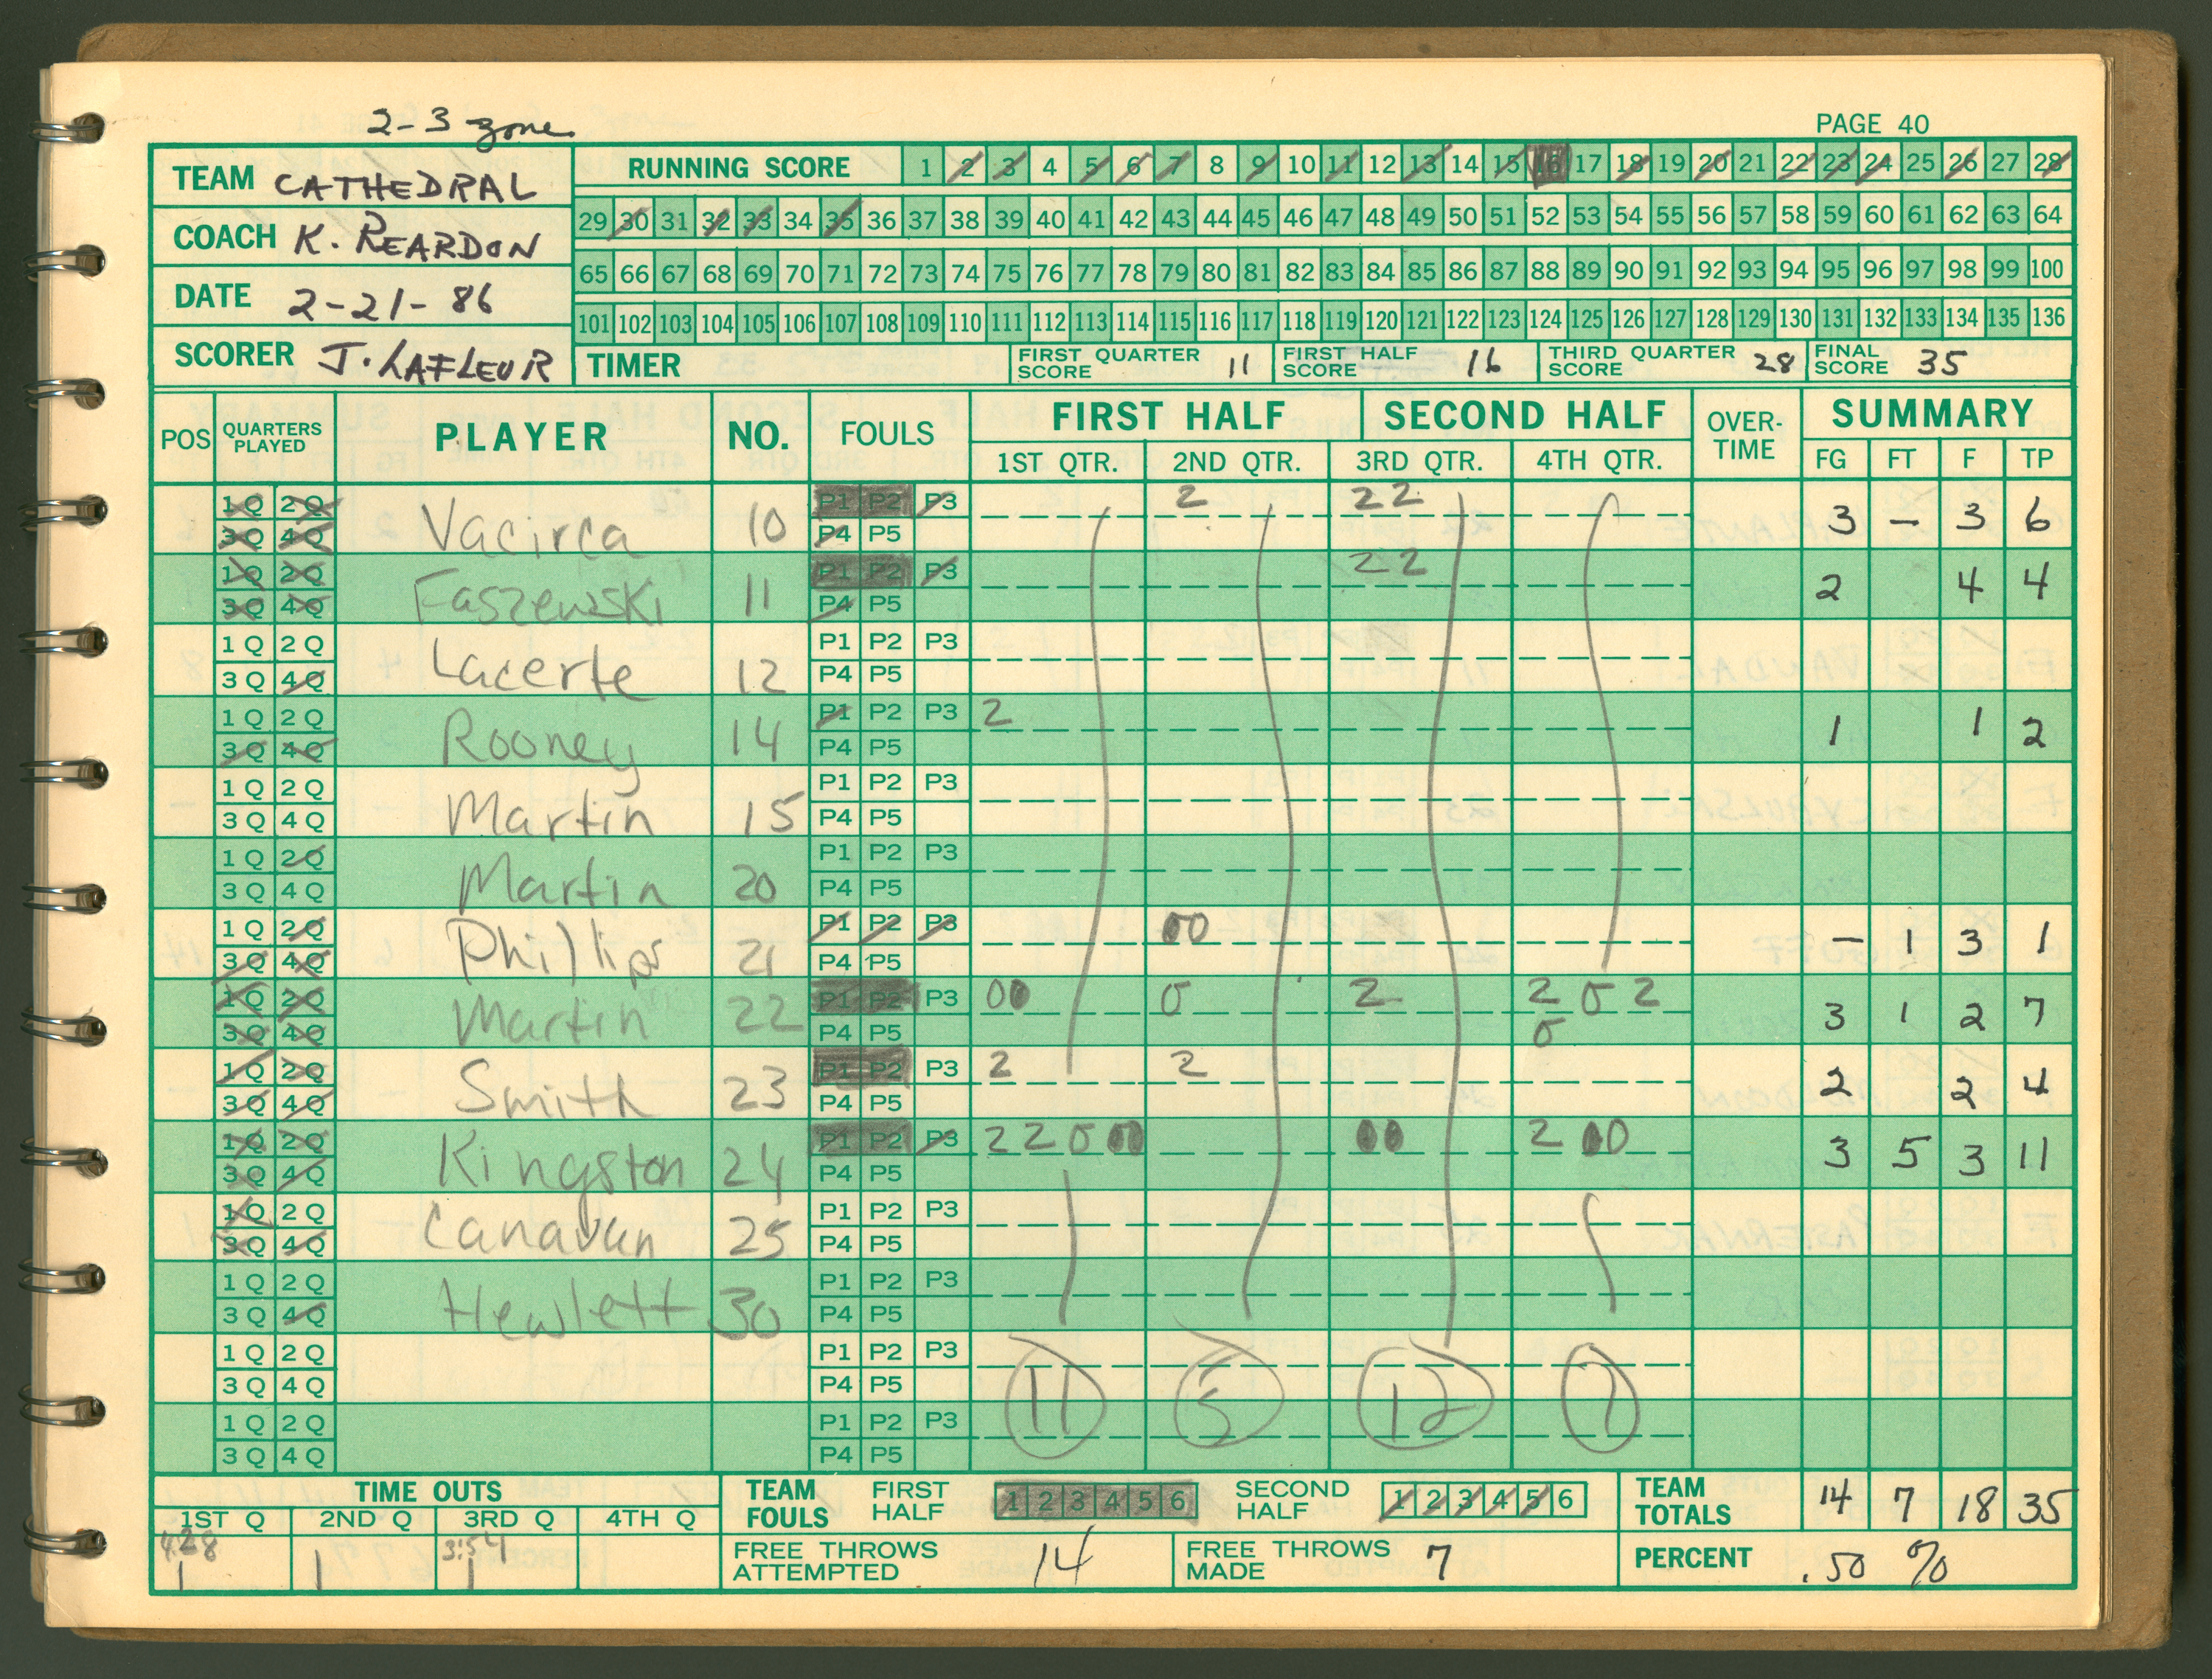 2-3 zone
PAGE 40
TEAM CATHEDRAL
COACH K. REARDON
DATE 2-21-86
SCORER J. LAFLEUR
RUNNING SCORE 1 2 3 4 5 6 7 8 9 10 11 12 13 14 15 16 17 18 19 20 21 22 23 24 25 26 27 28
29 30 31 32 33 34 35 36 37 38 39 40 41 42 43 44 45 46 47 48 49 50 51 52 53 54 55 56 57 58 59 60 61 62 63 64
65 66 67 68 69 70 71 72 73 74 75 76 77 78 79 80 81 82 83 84 85 86 87 88 89 90 91 92 93 94 95 96 97 98 99 100
101 102 103 104 105 106 107 108 109 110 111 112 113 114 115 116 117 118 119 120 121 122 123 124 125 126 127 128 129 130 131 132 133 134 135 136
TIMER FIRST QUARTER SCORE 11 FIRST HALF SCORE 16 THIRD QUARTER SCORE 28 FINAL SCORE 35
POS QUARTERS PLAYED PLAYER NO. FOULS FIRST HALF SECOND HALF OVER-TIME SUMMARY
1ST QTR. 2ND QTR. 3RD QTR. 4TH QTR. FG FT F TP
1Q 2Q P1 P2 P3 2 22
3Q 4Q Vacirca 10 P4 P5 3 – 3 6
1Q 2Q P1 P2 P3 22
3Q 4Q Faszewski 11 P4 P5 2 4 4
1Q 2Q P1 P2 P3
3Q 4Q Lacerte 12 P4 P5
1Q 2Q P1 P2 P3 2
3Q 4Q Rooney 14 P4 P5 1 1 2
1Q 2Q P1 P2 P3
3Q 4Q Martin 15 P4 P5
1Q 2Q P1 P2 P3
3Q 4Q Martin 20 P4 P5
1Q 2Q P1 P2 P3 00
3Q 4Q Phillips 21 P4 P5 – 1 3 1
1Q 2Q P1 P2 P3 00 0 2 2 0 2
3Q 4Q Martin 22 P4 P5 0 3 1 2 7
1Q 2Q P1 P2 P3 2 2
3Q 4Q Smith 23 P4 P5 2 2 4
1Q 2Q P1 P2 P3 2 2 0 00 00 2 00
3Q 4Q Kingston 24 P4 P5 3 5 3 11
1Q 2Q P1 P2 P3
3Q 4Q Canavan 25 P4 P5
1Q 2Q P1 P2 P3
3Q 4Q Hewlett 30 P4 P5
1Q 2Q P1 P2 P3
3Q 4Q P4 P5
11 5 12 7
1Q 2Q P1 P2 P3
3Q 4Q P4 P5
TIME OUTS
1ST Q 2ND Q 3RD Q 4TH Q
4:28 3:54
1 1 1
TEAM FOULS FIRST HALF 1 2 3 4 5 6 SECOND HALF 1 2 3 4 5 6
TEAM TOTALS 14 7 18 35
FREE THROWS ATTEMPTED 14 FREE THROWS MADE 7
PERCENT .50 %